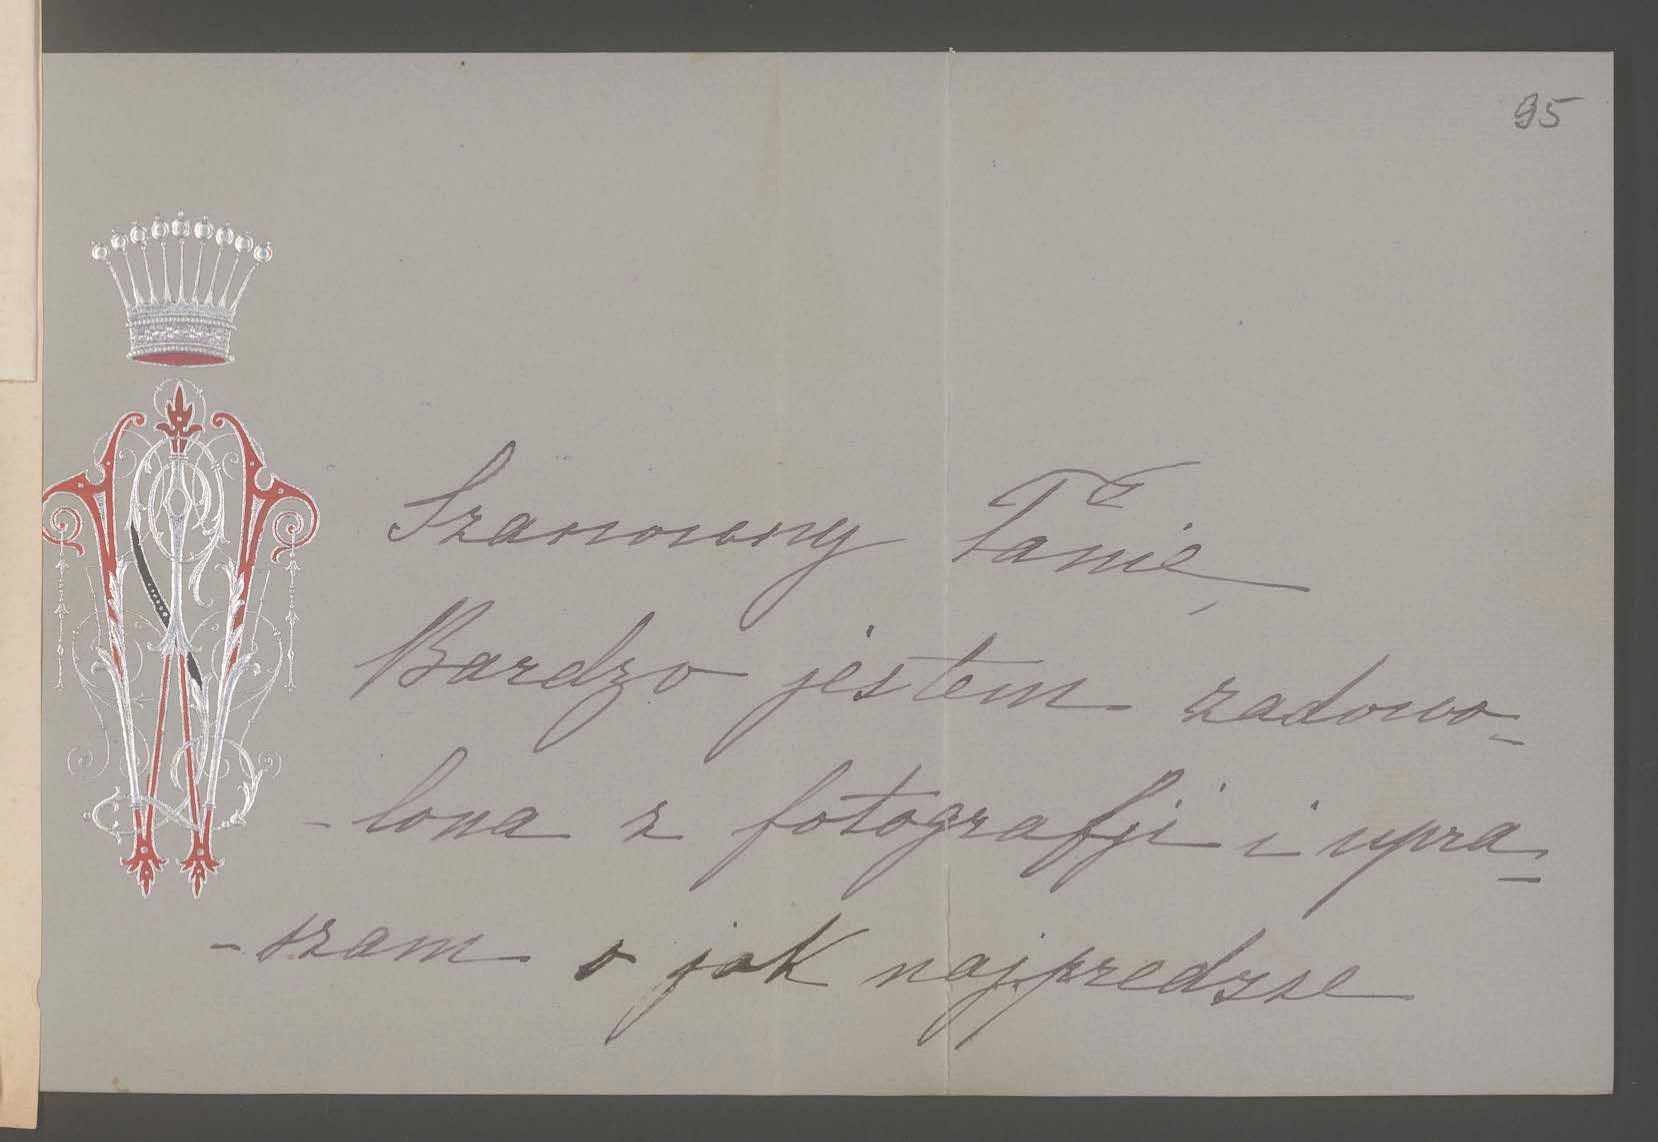 95
Szanowny Panie,
Bardzo jestem zadowo-
-lona z fotografji i upra-
-szam o jak najpredzsze